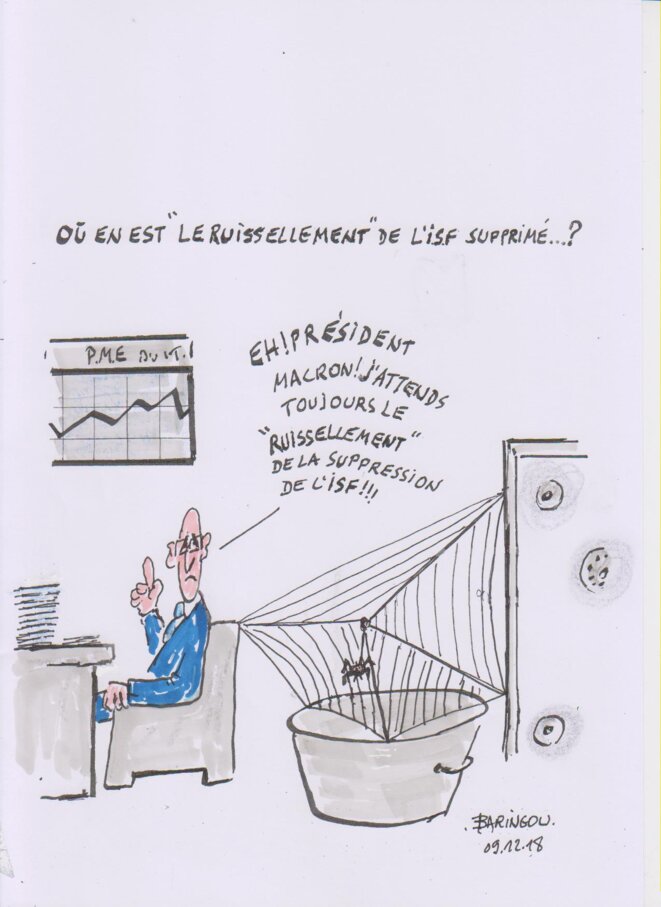 OÙ EN EST "LE RUISSELLEMENT" DE L'ISF SUPPRIMÉ...?
P.M.E
EH! PRÉSIDENT
MACRON! J'ATTENDS
TOUJOURS LE
"RUISSELLEMENT"
DE LA SUPPRESSION
DE L'ISF!!!
BARINGOU.
09.12.18